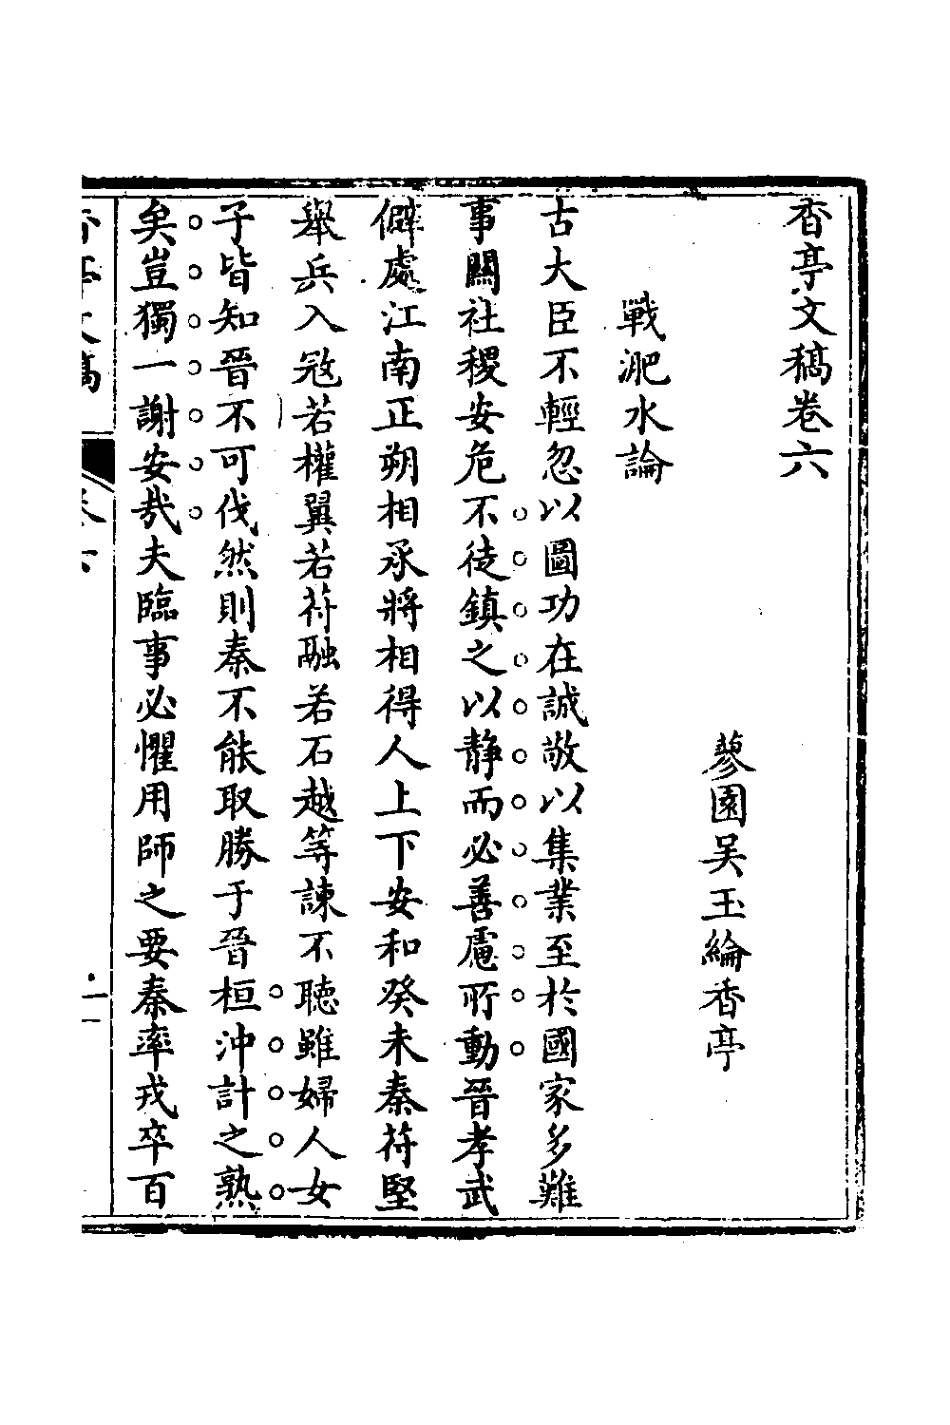 香亭文稿卷六
蓼園吴玉綸香亭
戰淝水論
古大臣不輕忽以圖功在誠敬以集業至於國家多難
事關社稷安危不徒鎮之以靜而必善慮所動晉孝武
僻處江南正朔相承將相得人上下安和癸未秦苻堅
舉兵入宼若權翼若苻融若石越等諫不聴雖婦人女
子皆知晉不可伐然則秦不能取勝于晉桓沖計之熟
矣豈獨一謝安㢤夫臨事必懼用師之要秦率戎卒百
香亭文稿
卷六
一